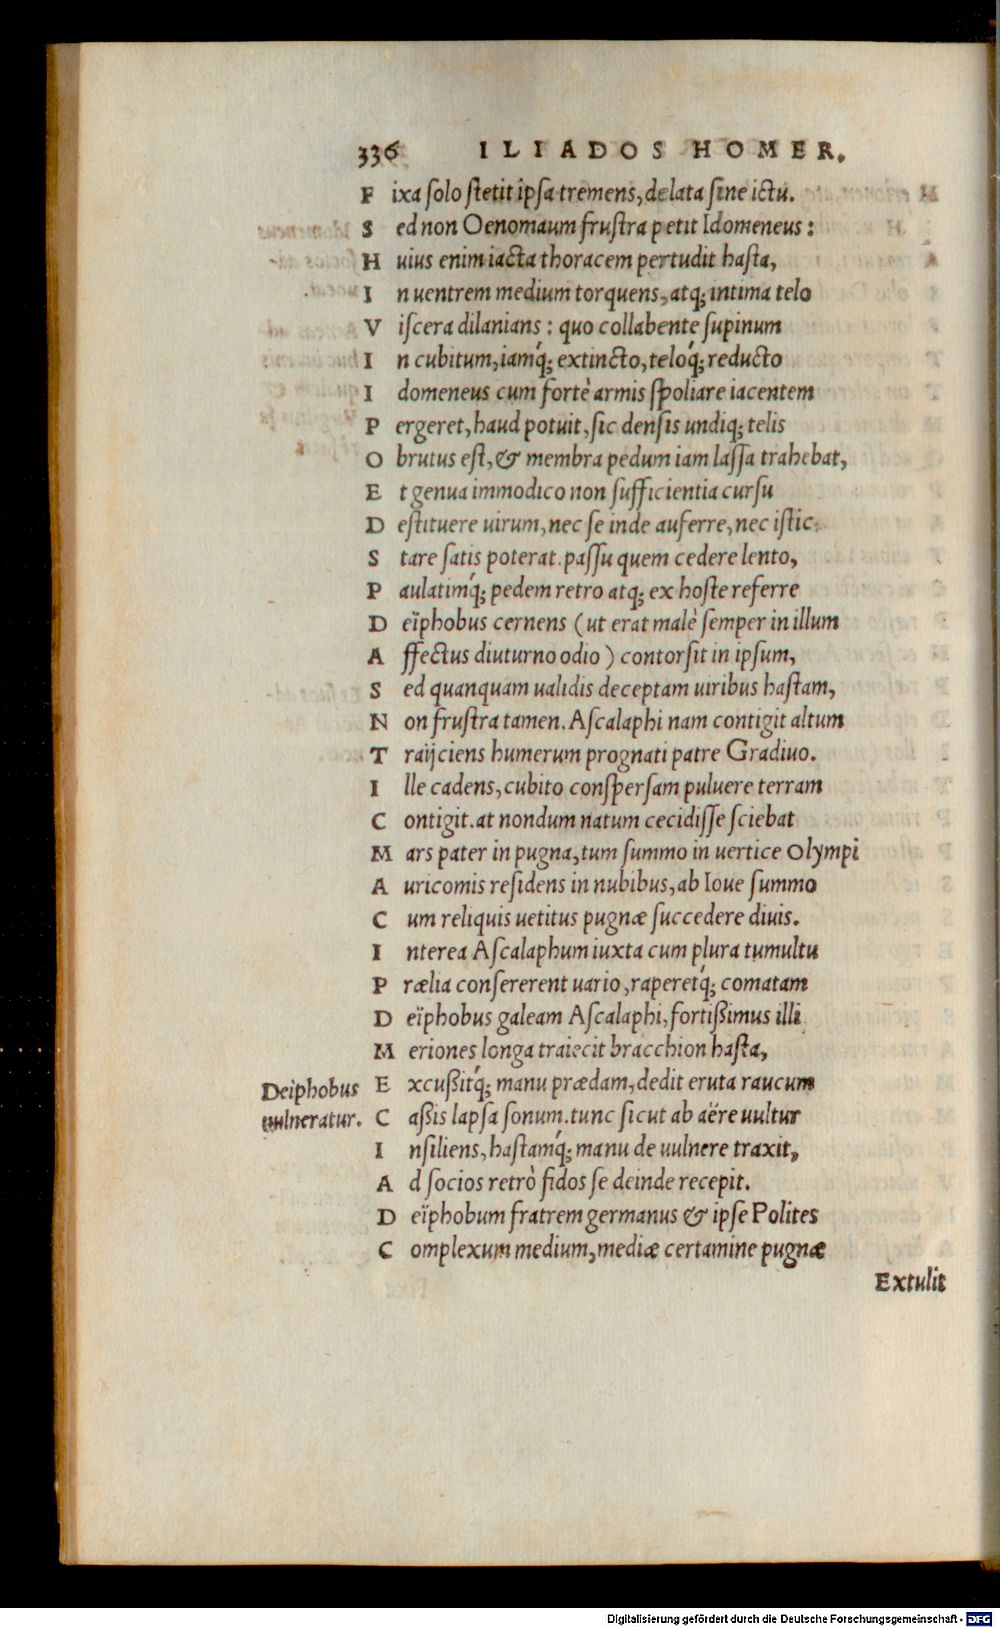 336 ILIADOS HOMER.
Fixa solo stetit ipsa tremens, delata sine ictu.
Sed non Oenomaum frustra petit Idomeneus:
Huius enim iacta thoracem pertudit hasta,
In uentrem medium torquens, atq; intima telo
Viscera dilanians: quo collabente supinum
In cubitum, iamq́; extincto, teloq́; reducto
Idomeneus cum fortè armis spoliare iacentem
Pergeret, haud potuit, sic densis undiq; telis
Obrutus est, & membra pedum iam lassa trahebat,
Et genua immodico non sufficientia cursu
Destituere uirum, nec se inde auferre, nec istic
Stare satis poterat. passu quem cedere lento,
Paulatimq́; pedem retro atq; ex hoste referre
Deïphobus cernens (ut erat malè semper in illum
Affectus diuturno odio) contorsit in ipsum,
Sed quanquam ualidis deceptam uiribus hastam,
Non frustra tamen. Ascalaphi nam contigit altum
Traijciens humerum prognati patre Gradiuo.
Ille cadens, cubito conspersam puluere terram
Contigit. at nondum natum cecidisse sciebat
Mars pater in pugna, tum summo in uertice Olympi
Auricomis residens in nubibus, ab Ioue summo
Cum reliquis uetitus pugnæ succedere diuis.
Interea Ascalaphum iuxta cum plura tumultu
Prælia consererent uario, raperetq́; comatam
Deïphobus galeam Ascalaphi, fortißimus illi
Meriones longa traiecit bracchion hasta,
Deiphobus
uulneratur.
Excußitq́; manu prædam, dedit eruta raucum
Caßis lapsa sonum. tunc sicut ab aëre uultur
Insiliens, hastamq́; manu de uulnere traxit,
Ad socios retrò fidos se deinde recepit.
Deïphobum fratrem germanus & ipse Polites
Complexum medium, mediæ certamine pugnæ
Extulit
Digitalisierung gefördert durch die Deutsche Forschungsgemeinschaft - DFG